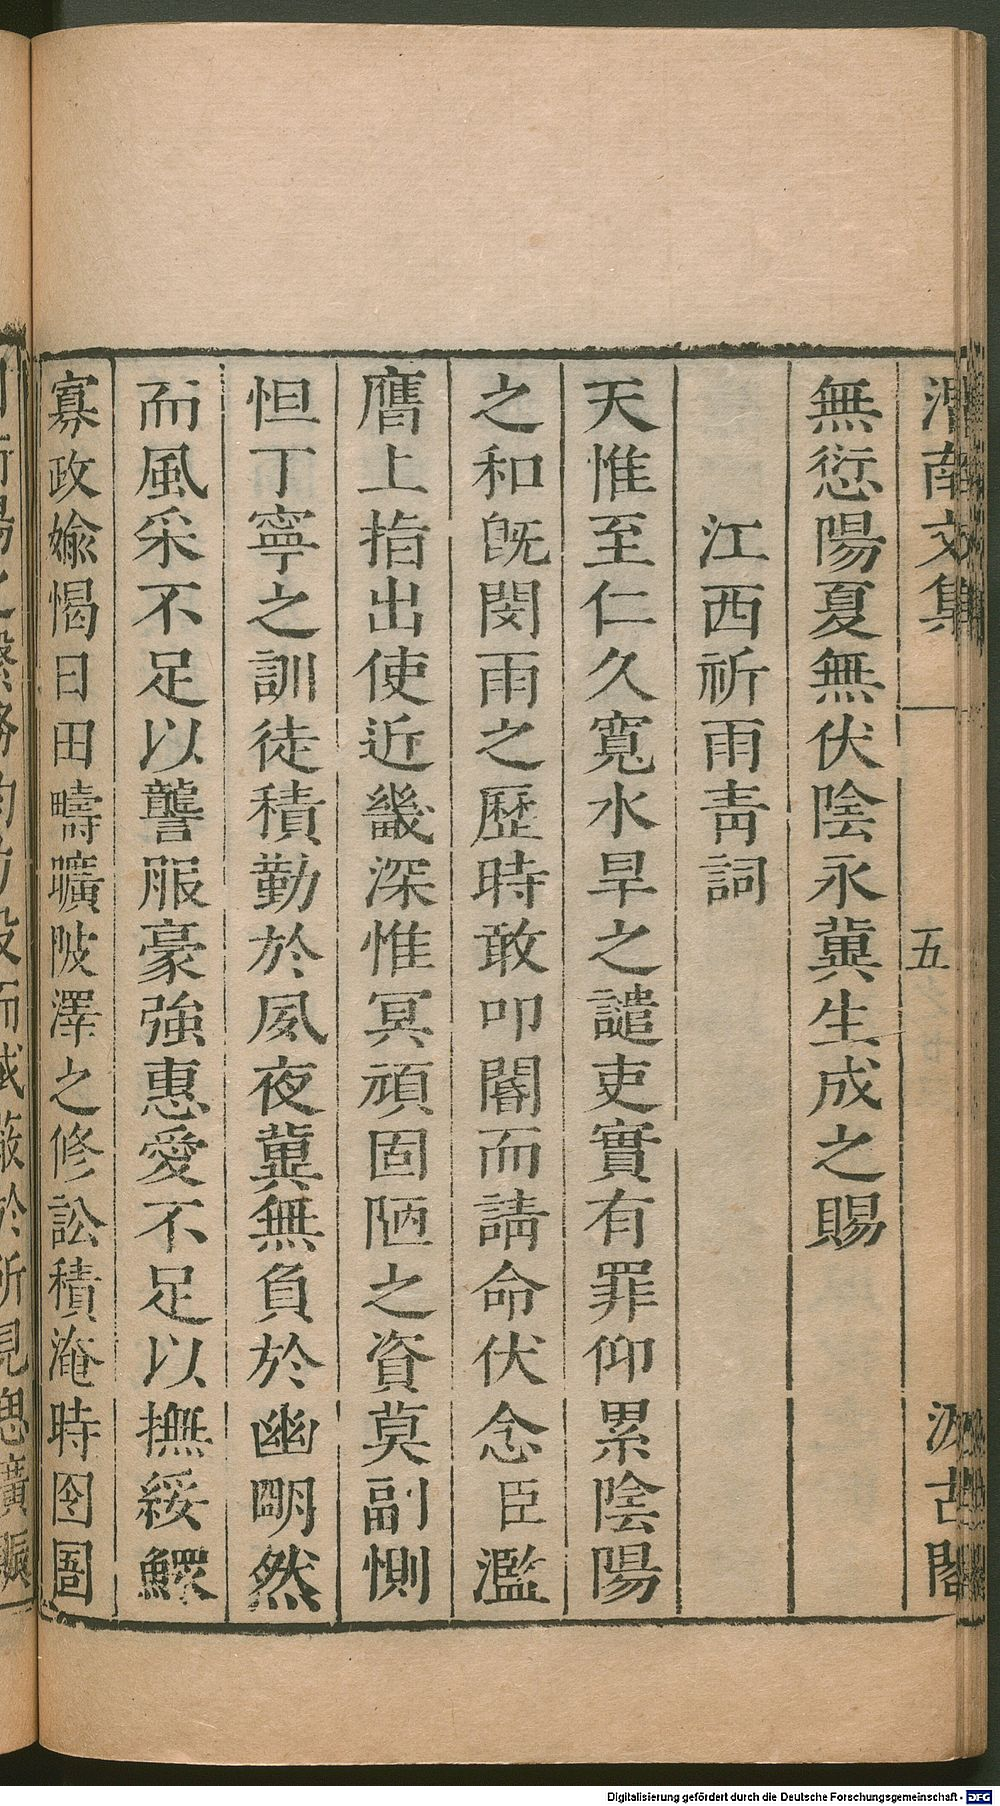 渭南文集
五
汲古閣
無愆陽夏無伏陰永冀生成之賜
江西祈雨靑詞
天惟至仁久寬水旱之譴吏實有罪仰累陰陽
之和旣閔雨之歷時敢叩閽而請命伏念臣濫
膺上指出使近畿深惟冥頑固陋之資莫副惻
怛丁寧之訓徒積勤於夙夜冀無負於幽明然
而風采不足以讋服豪強惠愛不足以撫綏鰥
寡政媮愒日田疇曠陂澤之修訟積淹時囹圄
Digitalisierung gefördert durch die Deutsche Forschungsgemeinschaft - DFG